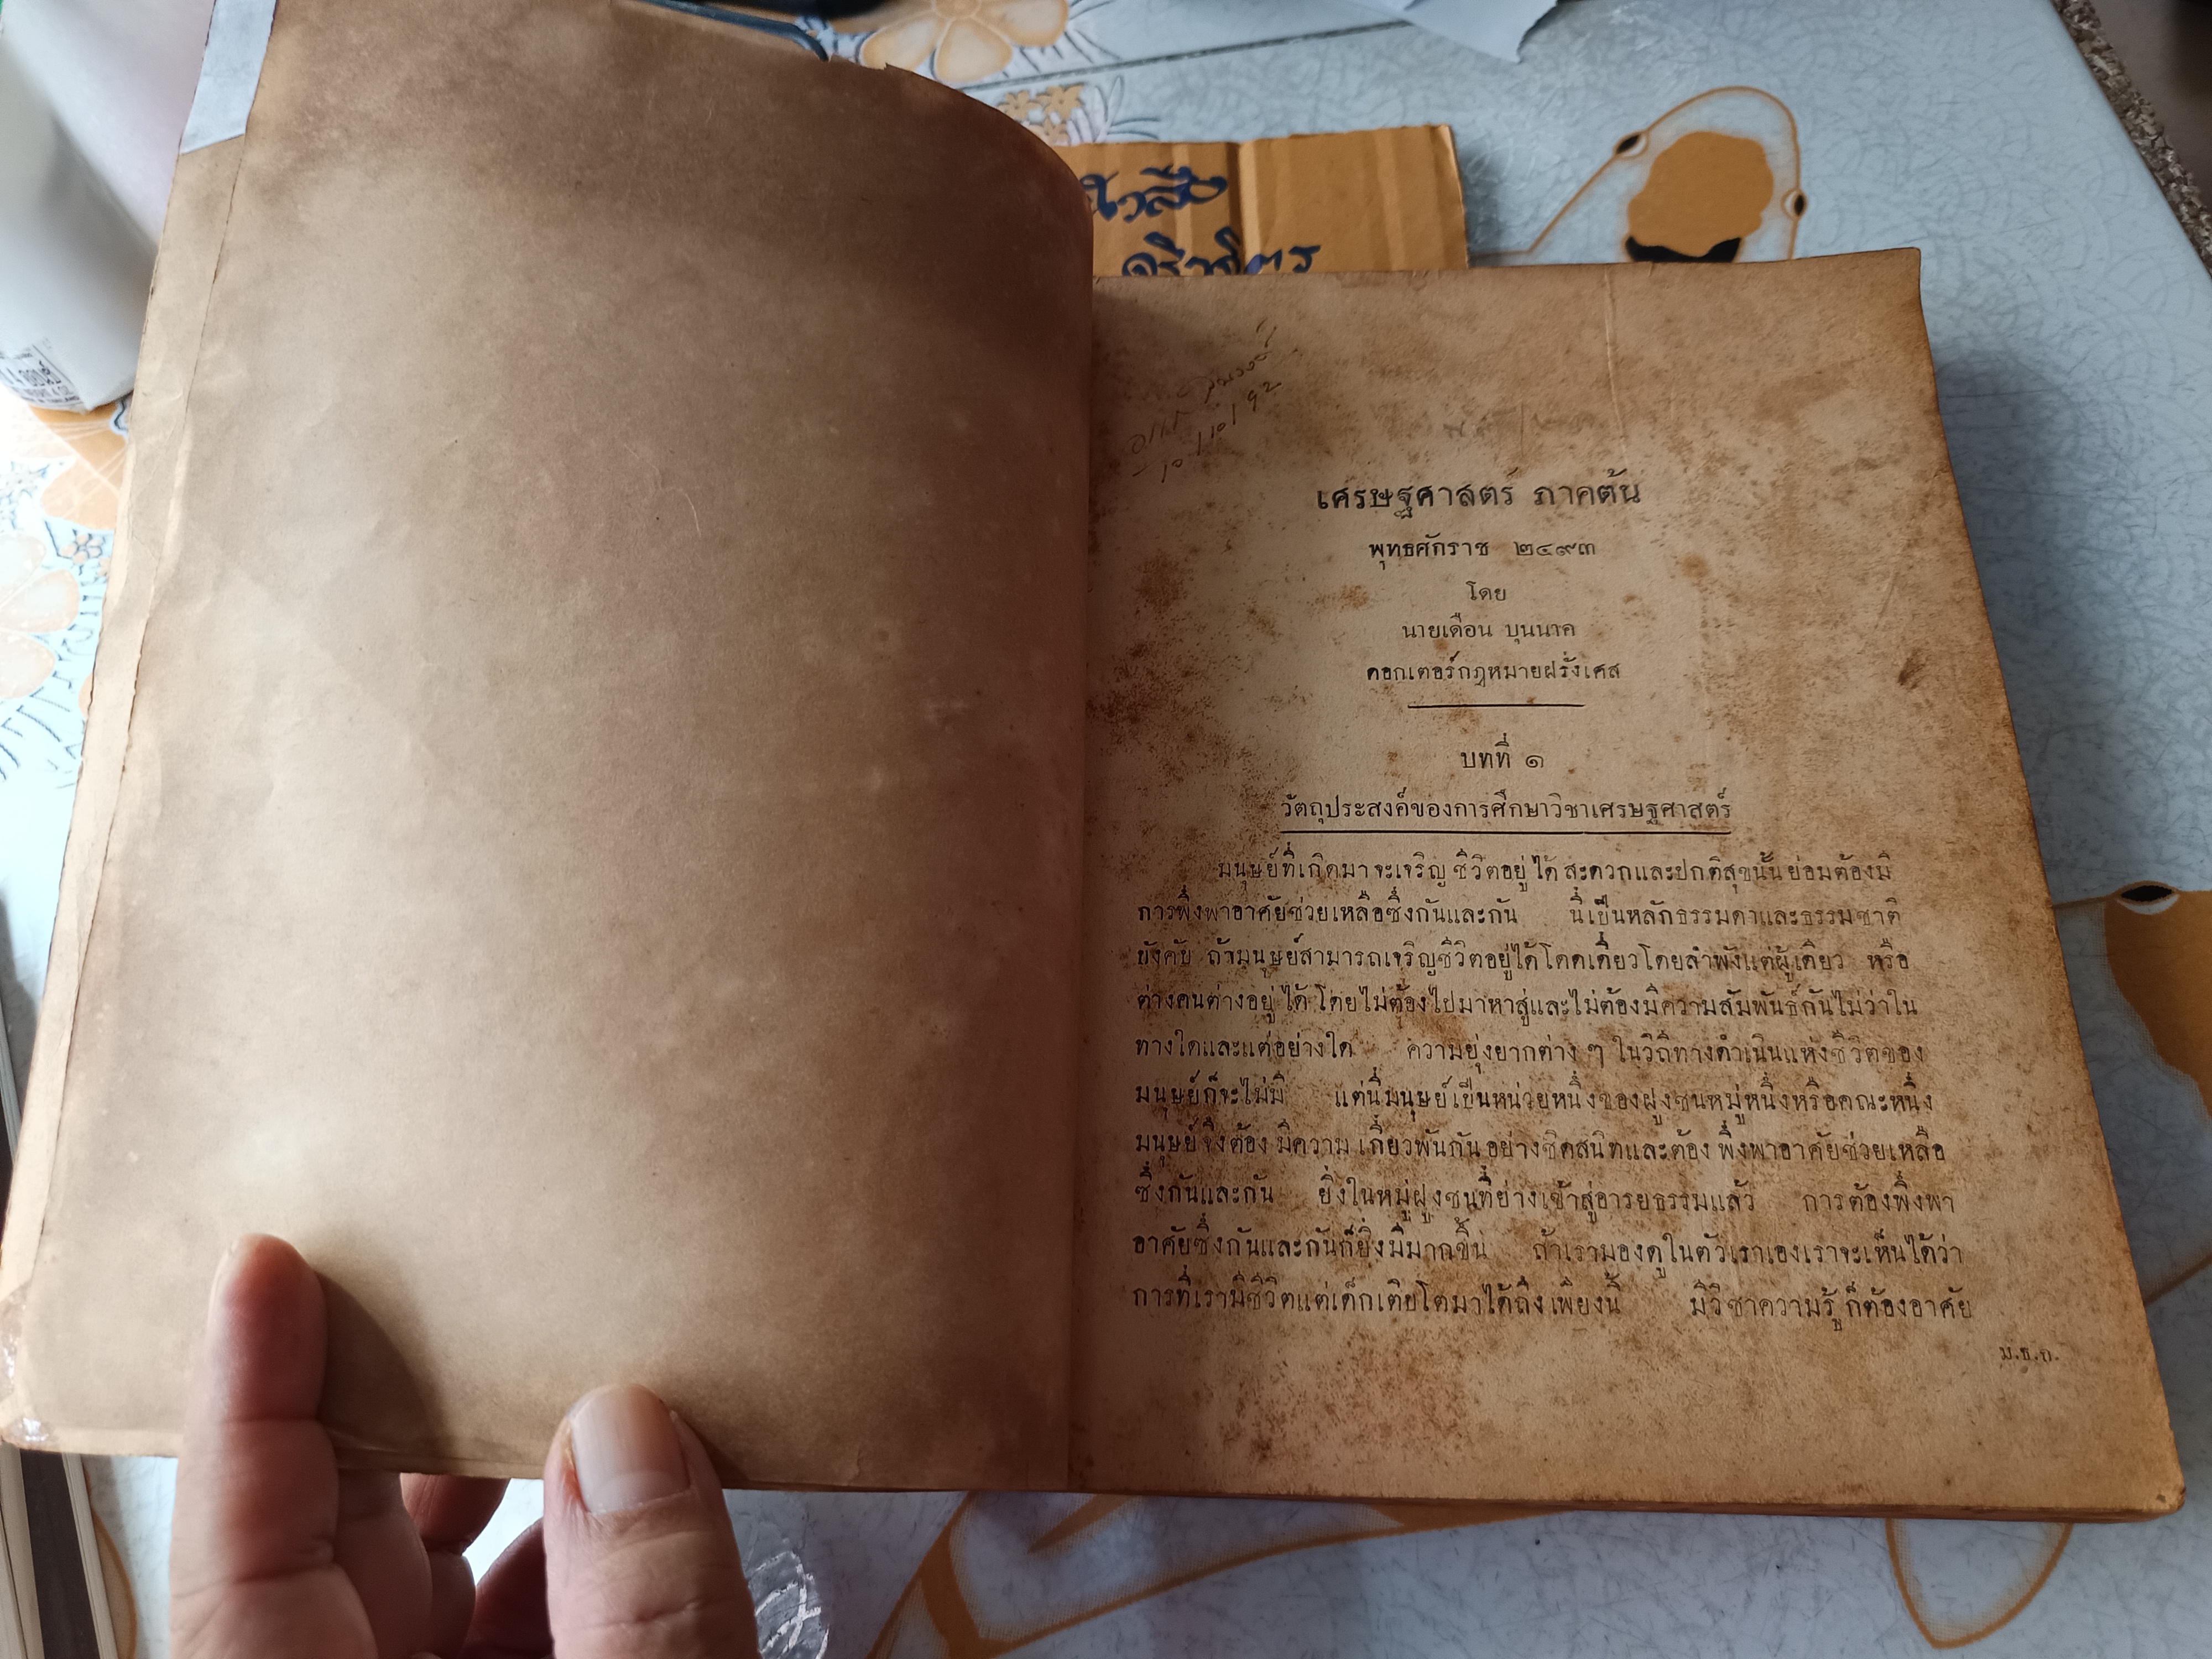 เศรษฐศาสตร์ ภาคต้น
พุทธศักราช ๒๔๙๓
โดย
นายเดือน บุนนาค
ดอกเตอร์กฎหมายฝรั่งเศส
บทที่ ๑
วัตถุประสงค์ของการศึกษาวิชาเศรษฐศาสตร์
มนุษย์ที่เกิดมาจะเจริญชีวิตอยู่ได้สะดวกและปกติสุขนั้นย่อมต้องมี
การพึ่งพาอาศัยช่วยเหลือซึ่งกันและกัน นี่เป็นหลักธรรมดาและธรรมชาติ
บังคับ ถ้ามนุษย์สามารถเจริญชีวิตอยู่ได้โดดเดี่ยวโดยลำพังแต่ผู้เดียว หรือ
ต่างคนต่างอยู่ได้โดยไม่ต้องไปมาหาสู่และไม่ต้องมีความสัมพันธ์กันไม่ว่าใน
ทางใดและแต่อย่างใด ความยุ่งยากต่าง ๆ ในวิถีทางดำเนินแห่งชีวิตของ
มนุษย์ก็จะไม่มี แต่นี่มนุษย์เป็นหน่วยหนึ่งของฝูงชนหมู่หนึ่งหรือคณะหนึ่ง
มนุษย์จึงต้องมีความเกี่ยวพันกันอย่างชิดสนิทและต้องพึ่งพาอาศัยช่วยเหลือ
ซึ่งกันและกัน ยิ่งในหมู่ฝูงชนที่ย่างเข้าสู่อารยธรรมแล้ว การต้องพึ่งพา
อาศัยซึ่งกันและกันก็ยิ่งมีมากขึ้น ถ้าเรามองดูในตัวเราเองเราจะเห็นได้ว่า
การที่เรามีชีวิตแต่เด็กเติบโตมาได้ถึงเพียงนี้ มีวิชาความรู้ก็ต้องอาศัย
ม.ธ.ก.